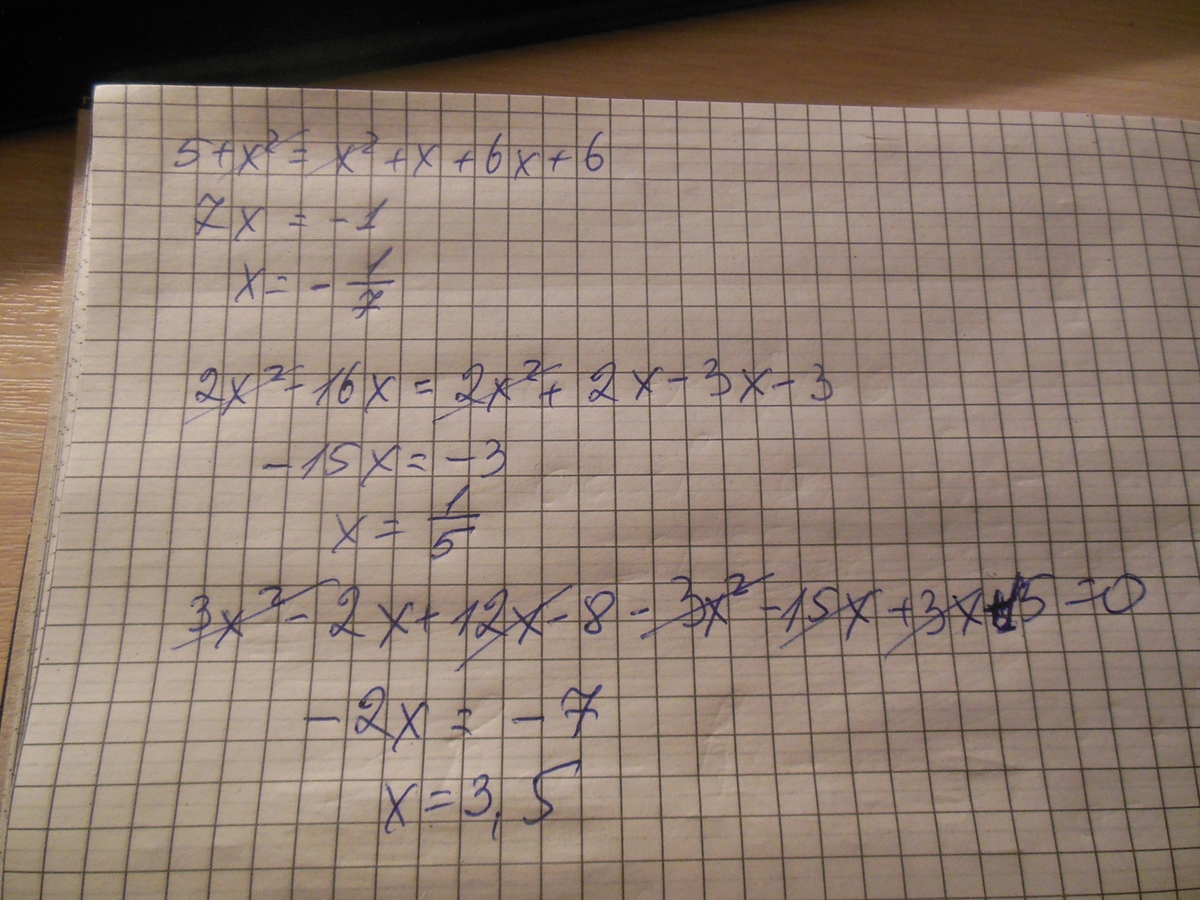 5+x²=x²+x+6x+6
7x=-1
x=-1/7
2x²-16x=2x²+2x-3x-3
-15x=-3
x=1/5
3x²-2x+12x-8-3x²-15x+3x+15=0
-2x=-7
x=3,5